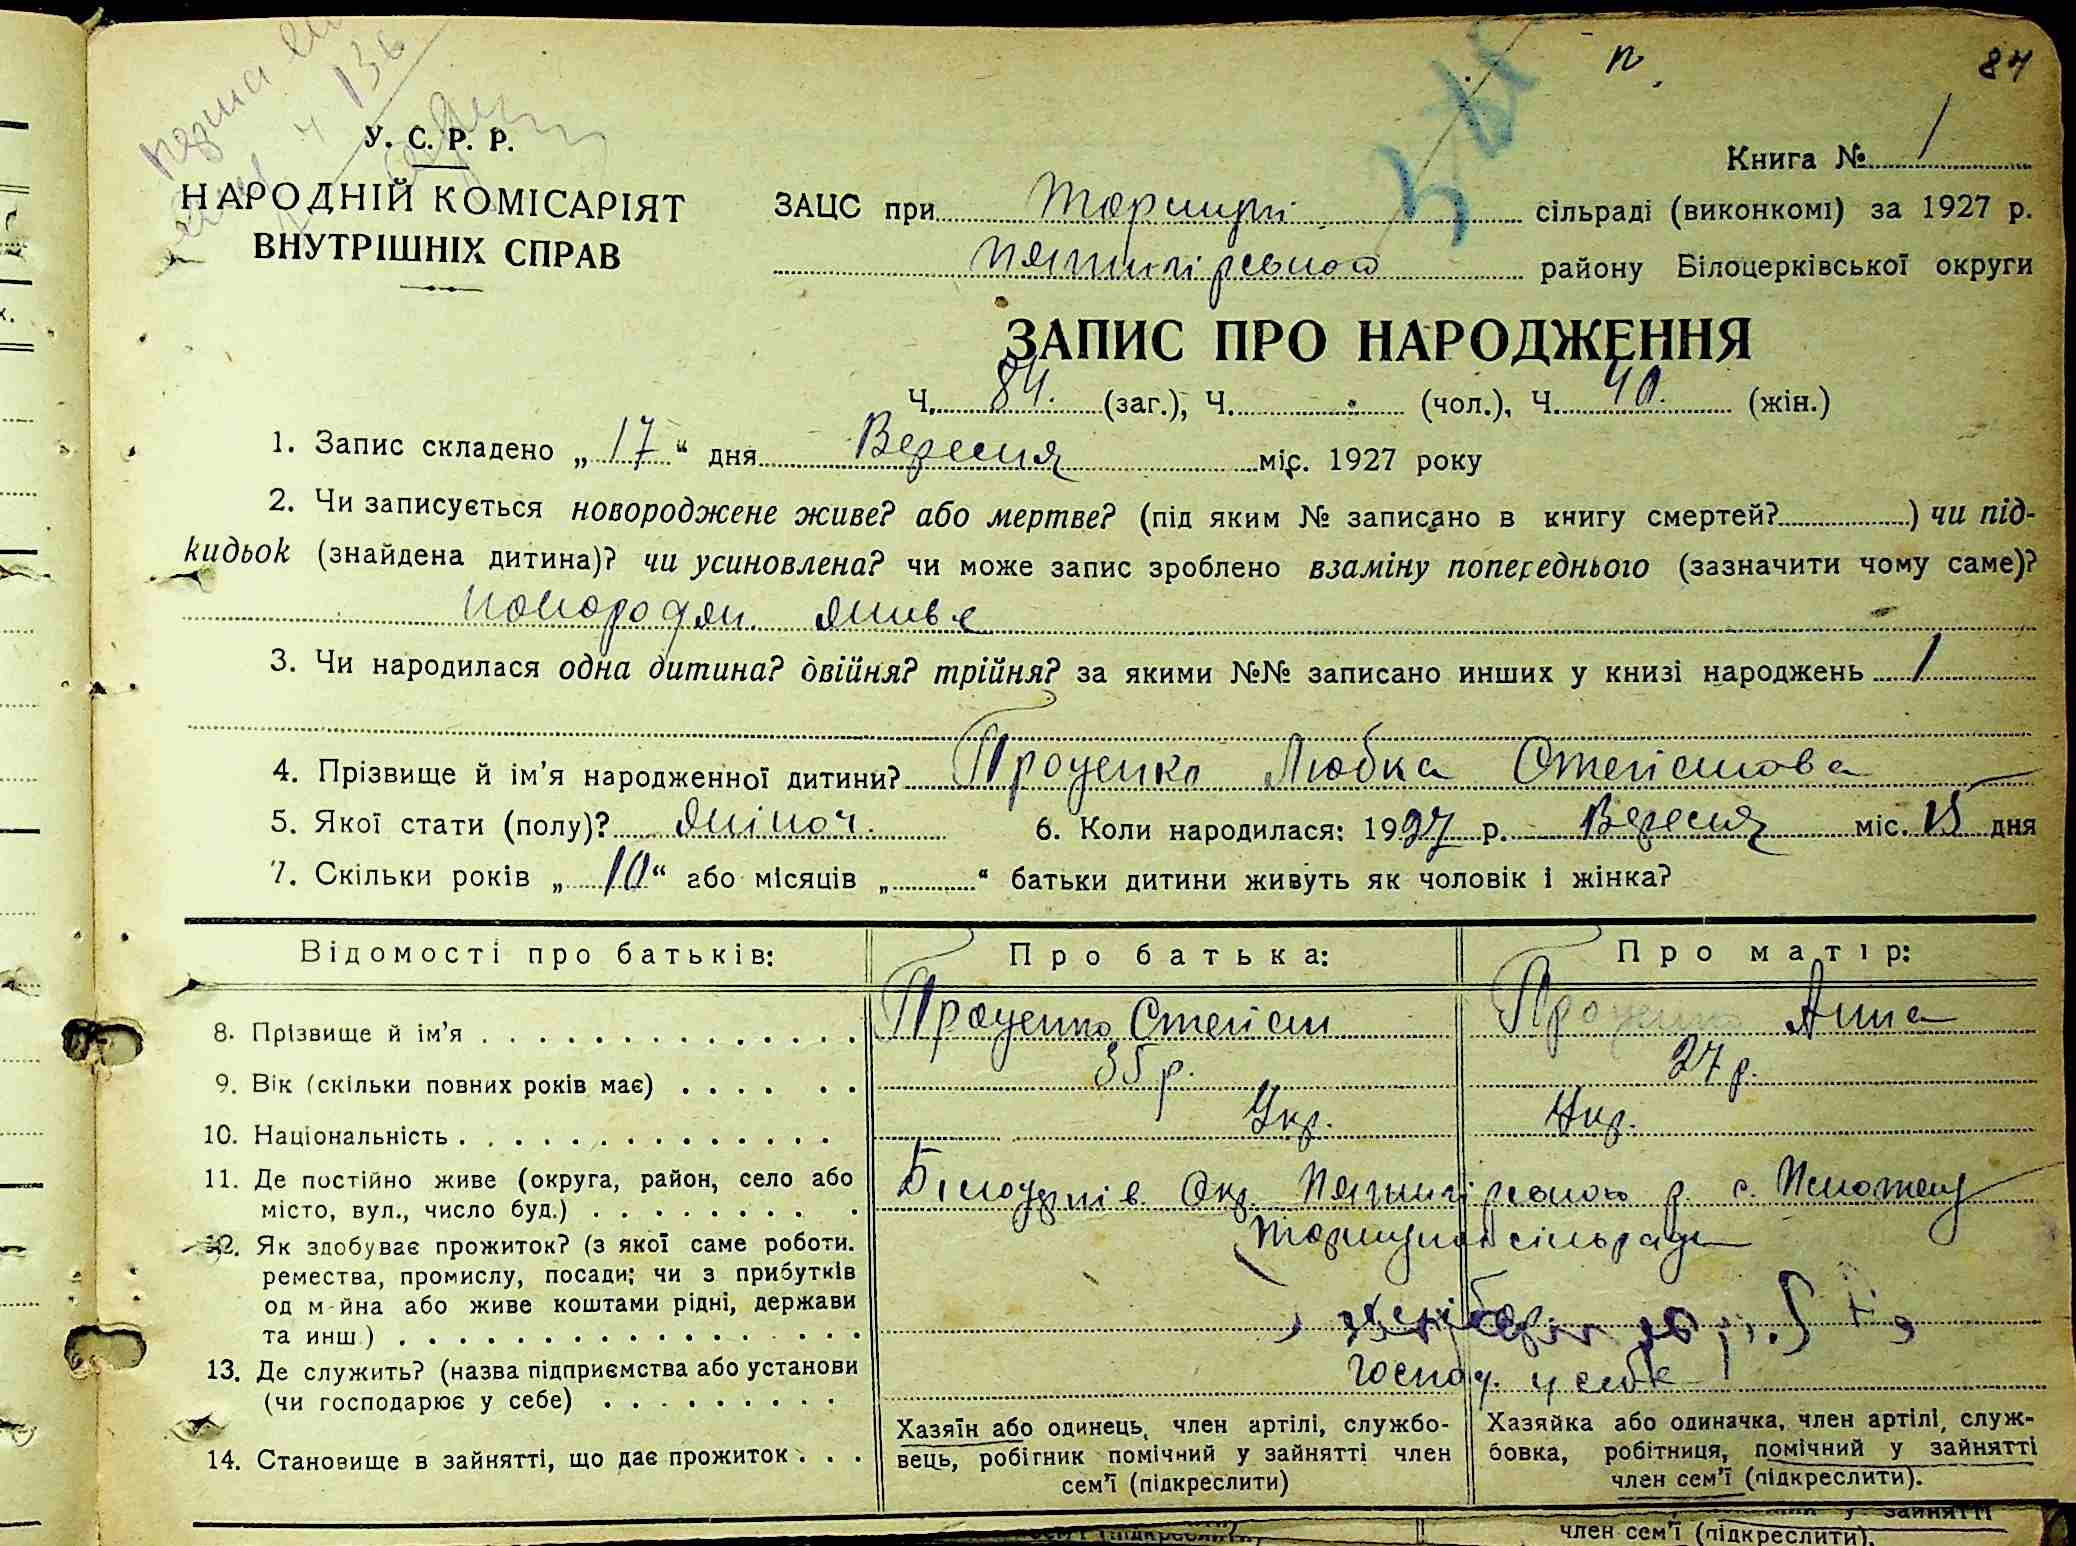 84
У. С. Р. Р.
НАРОДНІЙ КОМІСАРІЯТ
ВНУТРІШНІХ СПРАВ
Книга № 1
ЗАЦС при Торицькі сільраді (виконкомі) за 1927 р.
Пятигірського району Білоцерківської округи
ЗАПИС ПРО НАРОДЖЕННЯ
Ч. 84. (заг.), Ч. (чол.), Ч. 40. (жін.)
1. Запис складено „ 17 “ дня Вересня міс. 1927 року
2. Чи записується новороджене живе? або мертве? (під яким № записано в книгу смертей? ) чи під-
кидьок (знайдена дитина)? чи усиновлена? чи може запис зроблено взаміну попереднього (зазначити чому саме)?
новородж. живе
3. Чи народилася одна дитина? двійня? трійня? за якими №№ записано инших у книзі народжень 1
4. Прізвище й ім’я народженної дитини? Проценко Любка Степанова
5. Якої стати (полу)? жіноч. 6. Коли народилася: 1927 р. Вересня міс. 15 дня
7. Скільки років „ 10 “ або місяців „ “ батьки дитини живуть як чоловік і жінка?
Відомості про батьків: Про батька: Про матір:
8. Прізвище й ім’я Проценко Степан Проценко Анна
9. Вік (скільки повних років має) 35 р. 27 р.
10. Національність Укр. Укр.
11. Де постійно живе (округа, район, село або Білоцерків. Окр. Пятигірського р. с.
місто, вул., число буд.)
12. Як здобуває прожиток? (з якої саме роботи.
ремества, промислу, посади; чи з прибутків
од м-йна або живе коштами рідні, держави
та инш.)
13. Де служить? (назва підприємства або установи Господ. у себе
(чи господарює у себе)
14. Становище в зайнятті, що дає прожиток
Хазяїн або одинець, член артілі, службо-
вець, робітник помічний у зайнятті член
сем’ї (підкреслити)
Хазяйка або одиначка, член артілі, служ-
бовка, робітниця, помічний у зайнятті
член сем’ї (підкреслити).
член сем’ї (підкреслити).